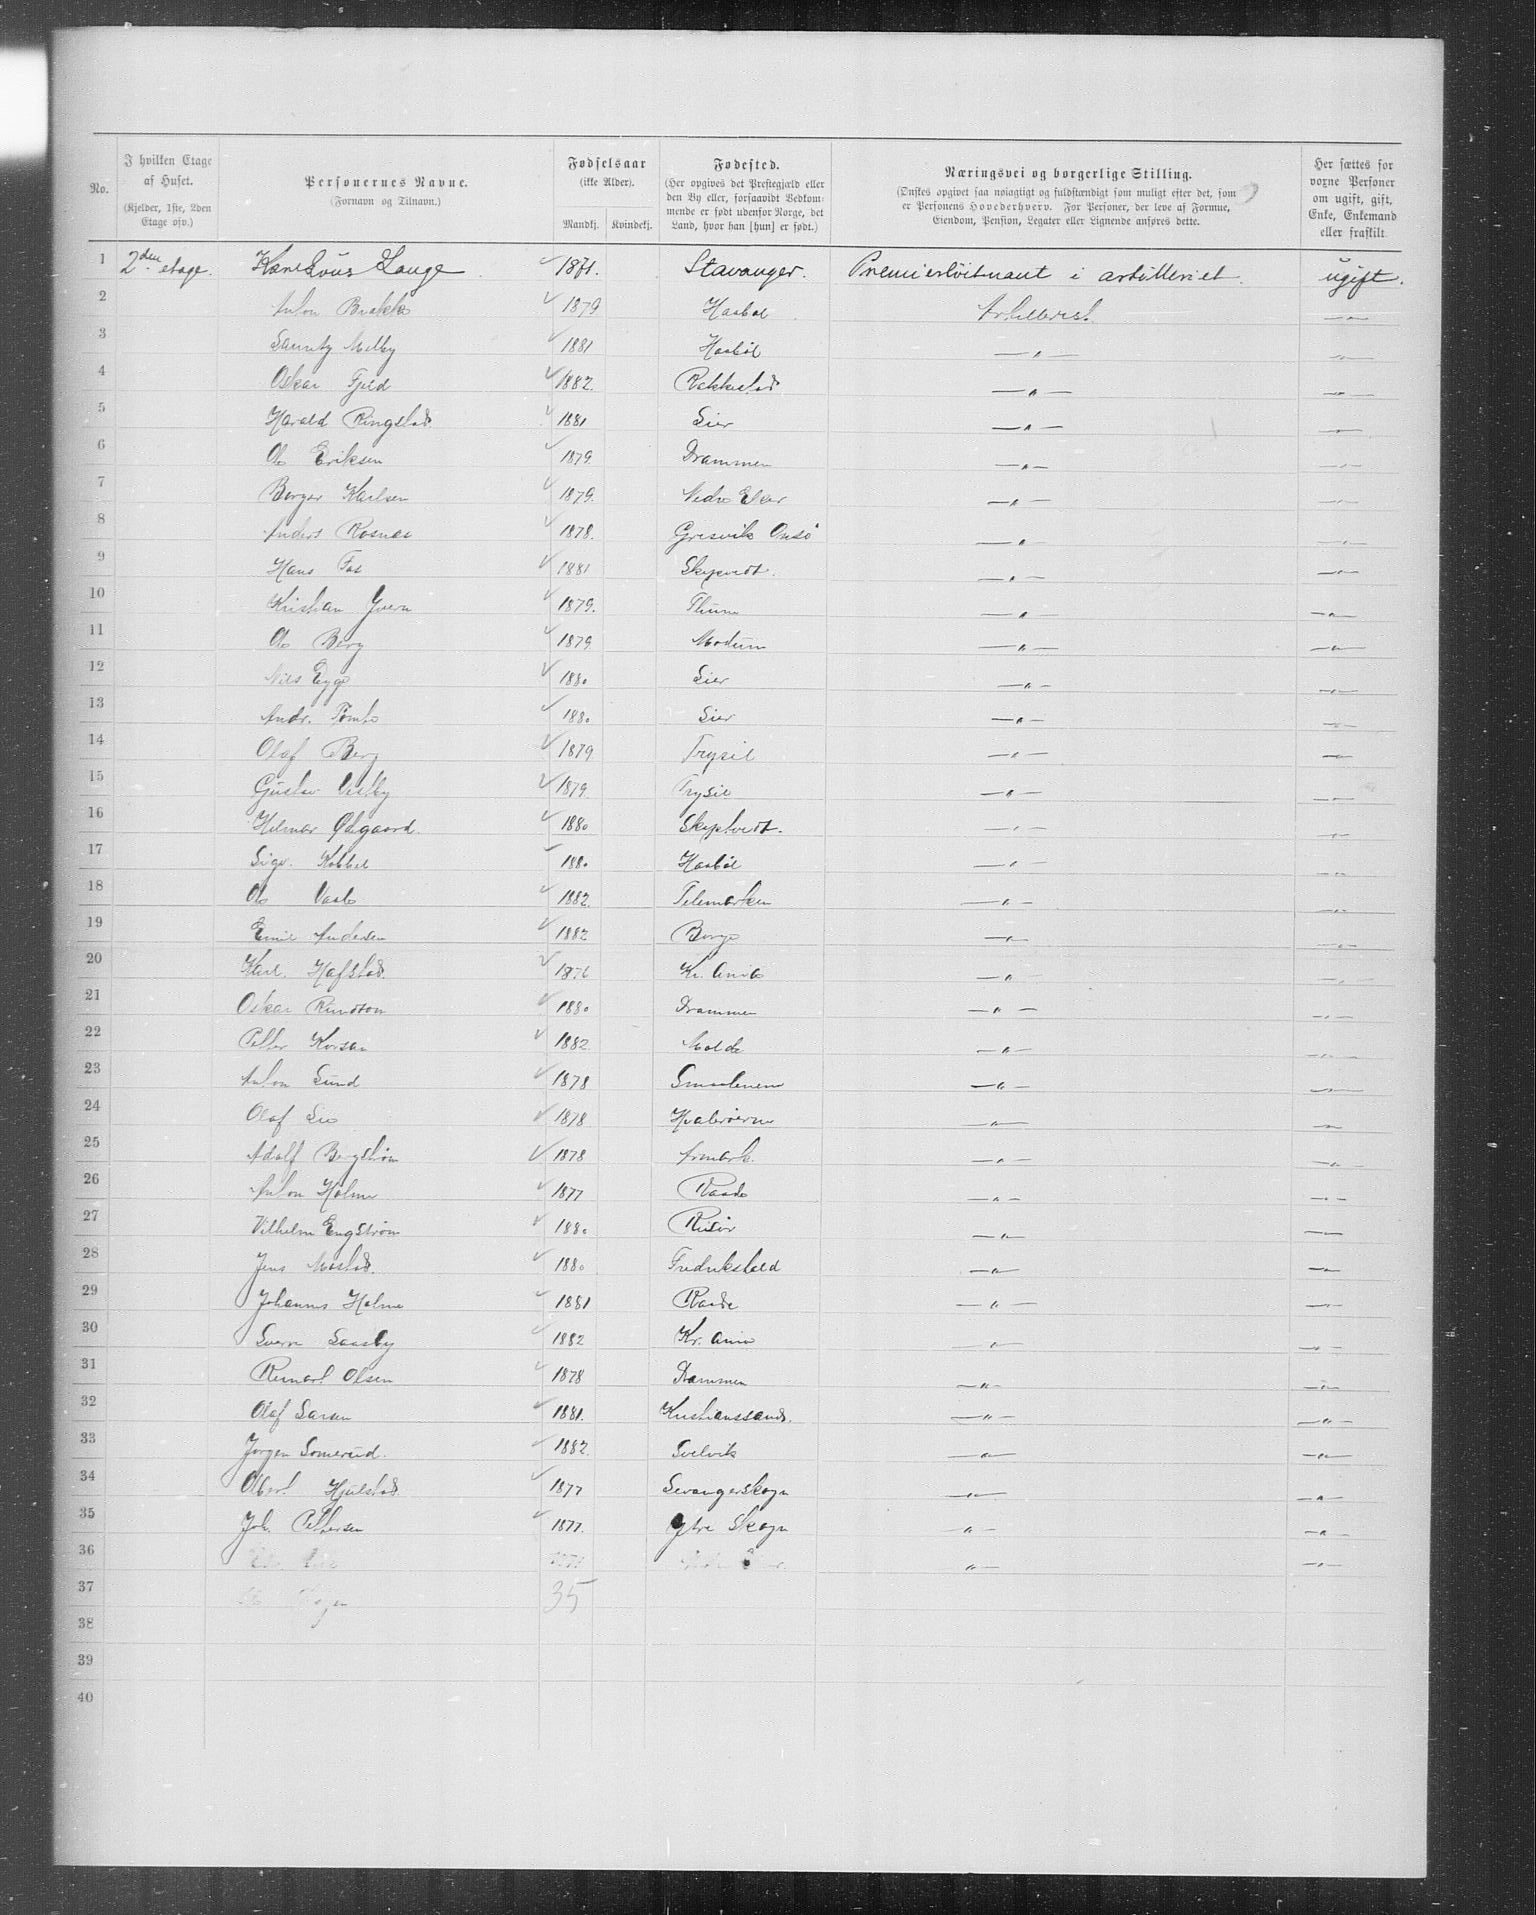 No.
I hvilken Etage af Huset.
(Kjelder, 1ste, 2den Etage osv.)
Personernes Navne.
(Fornavn og Tilnavn.)
Fødselsaar
(ikke Alder).
Mandkj. Kvindekj.
Fødested.
(Her opgives det Præstegjæld eller
den By eller, forsaavidt Vedkom-
mende er født udenfor Norge, det
Land, hvor han [hun] er født.)
Næringsvei og borgerlige Stilling.
(Ønskes opgivet saa nøiagtigt og fuldstændigt som muligt efter det, som
er Personens Hovederhverv. For Personer, der leve af Formue,
Eiendom, Pension, Legater eller Lignende anføres dette.
Her sættes for
voxne Personer
om ugift, gift,
Enke, Enkemand
eller fraskilt.
1 2den etage. Lange 1871. Stavanger. Premierløitnant i artilleriet. ugift.
2 Anton Brække 1879 Haabøl Artillerist. — " —
3 Melby 1881 Haabøl — " — — " —
4 Oskar Fjeld 1882. Rakkestad — " — — " —
5 Harald Ringstad 1881 Lier — " — — " —
6 Ole Eriksen 1879. Drammen — " — — " —
7 Borger Karlsen 1879. Nedre Eker — " — — " —
8 Anders Rosnæs 1878. Gresvik Onsö — " — — " —
9 Hans Fos 1881 Skiptvedt. — " — — " —
10 Kristian 1879. Thune — " — — " —
11 Ole Berg 1879 Modum — " — — " —
12 Nils Egge 1880 Lier — " — — " —
13 Andr. Tømte 1880 Lier — " — — " —
14 Olaf Berg 1879 Trysil — " — — " —
15 Gustav Vestby 1879. Trysil — " — — " —
16 Hilmar Ødgaard. 1880 Skiptvedt. — " — — " —
17 Sigv. Kobbel 1880 Haabøl — " — — " —
18 Ole Vaale 1882. Telemarken — " — — " —
19 Emil Andersen 1882 Borge — " — — " —
20 Karl. Hafstad. 1876 Kr.ania — " — — " —
21 Oskar 1880 Drammen — " — — " —
22 Petter 1882. Molde — " — — " —
23 Anton Lund 1878 Smaalenene — " — — " —
24 Olaf Lie 1878 Hvaløerne — " — — " —
25 Adolf Bergstrøm 1878 Armark. — " — — " —
26 Anton Holme 1877 Raade — " — — " —
27 Vilhelm Engstrøm 1880 Risør — " — — " —
28 Jens Mostad. 1880 Fredrikshald — " — — " —
29 Johannes Holme 1881 Raade — " — — " —
30 Sverre Saasby 1882 Kr.ania — " — — " —
31 Reinart Olsen 1878 Drammen — " — — " —
32 Olaf Larsen 1881. Kristianssand. — " — — " —
33 Jørgen Somerud. 1882. Svelvik — " — — " —
34 Albert Hjulstad. 1877 Levangerskogn — " — — " —
35 Joh. Pettersen 1877. Ytre Skogn — " — — " —
36 — " — — " —
37 35
38
39
40